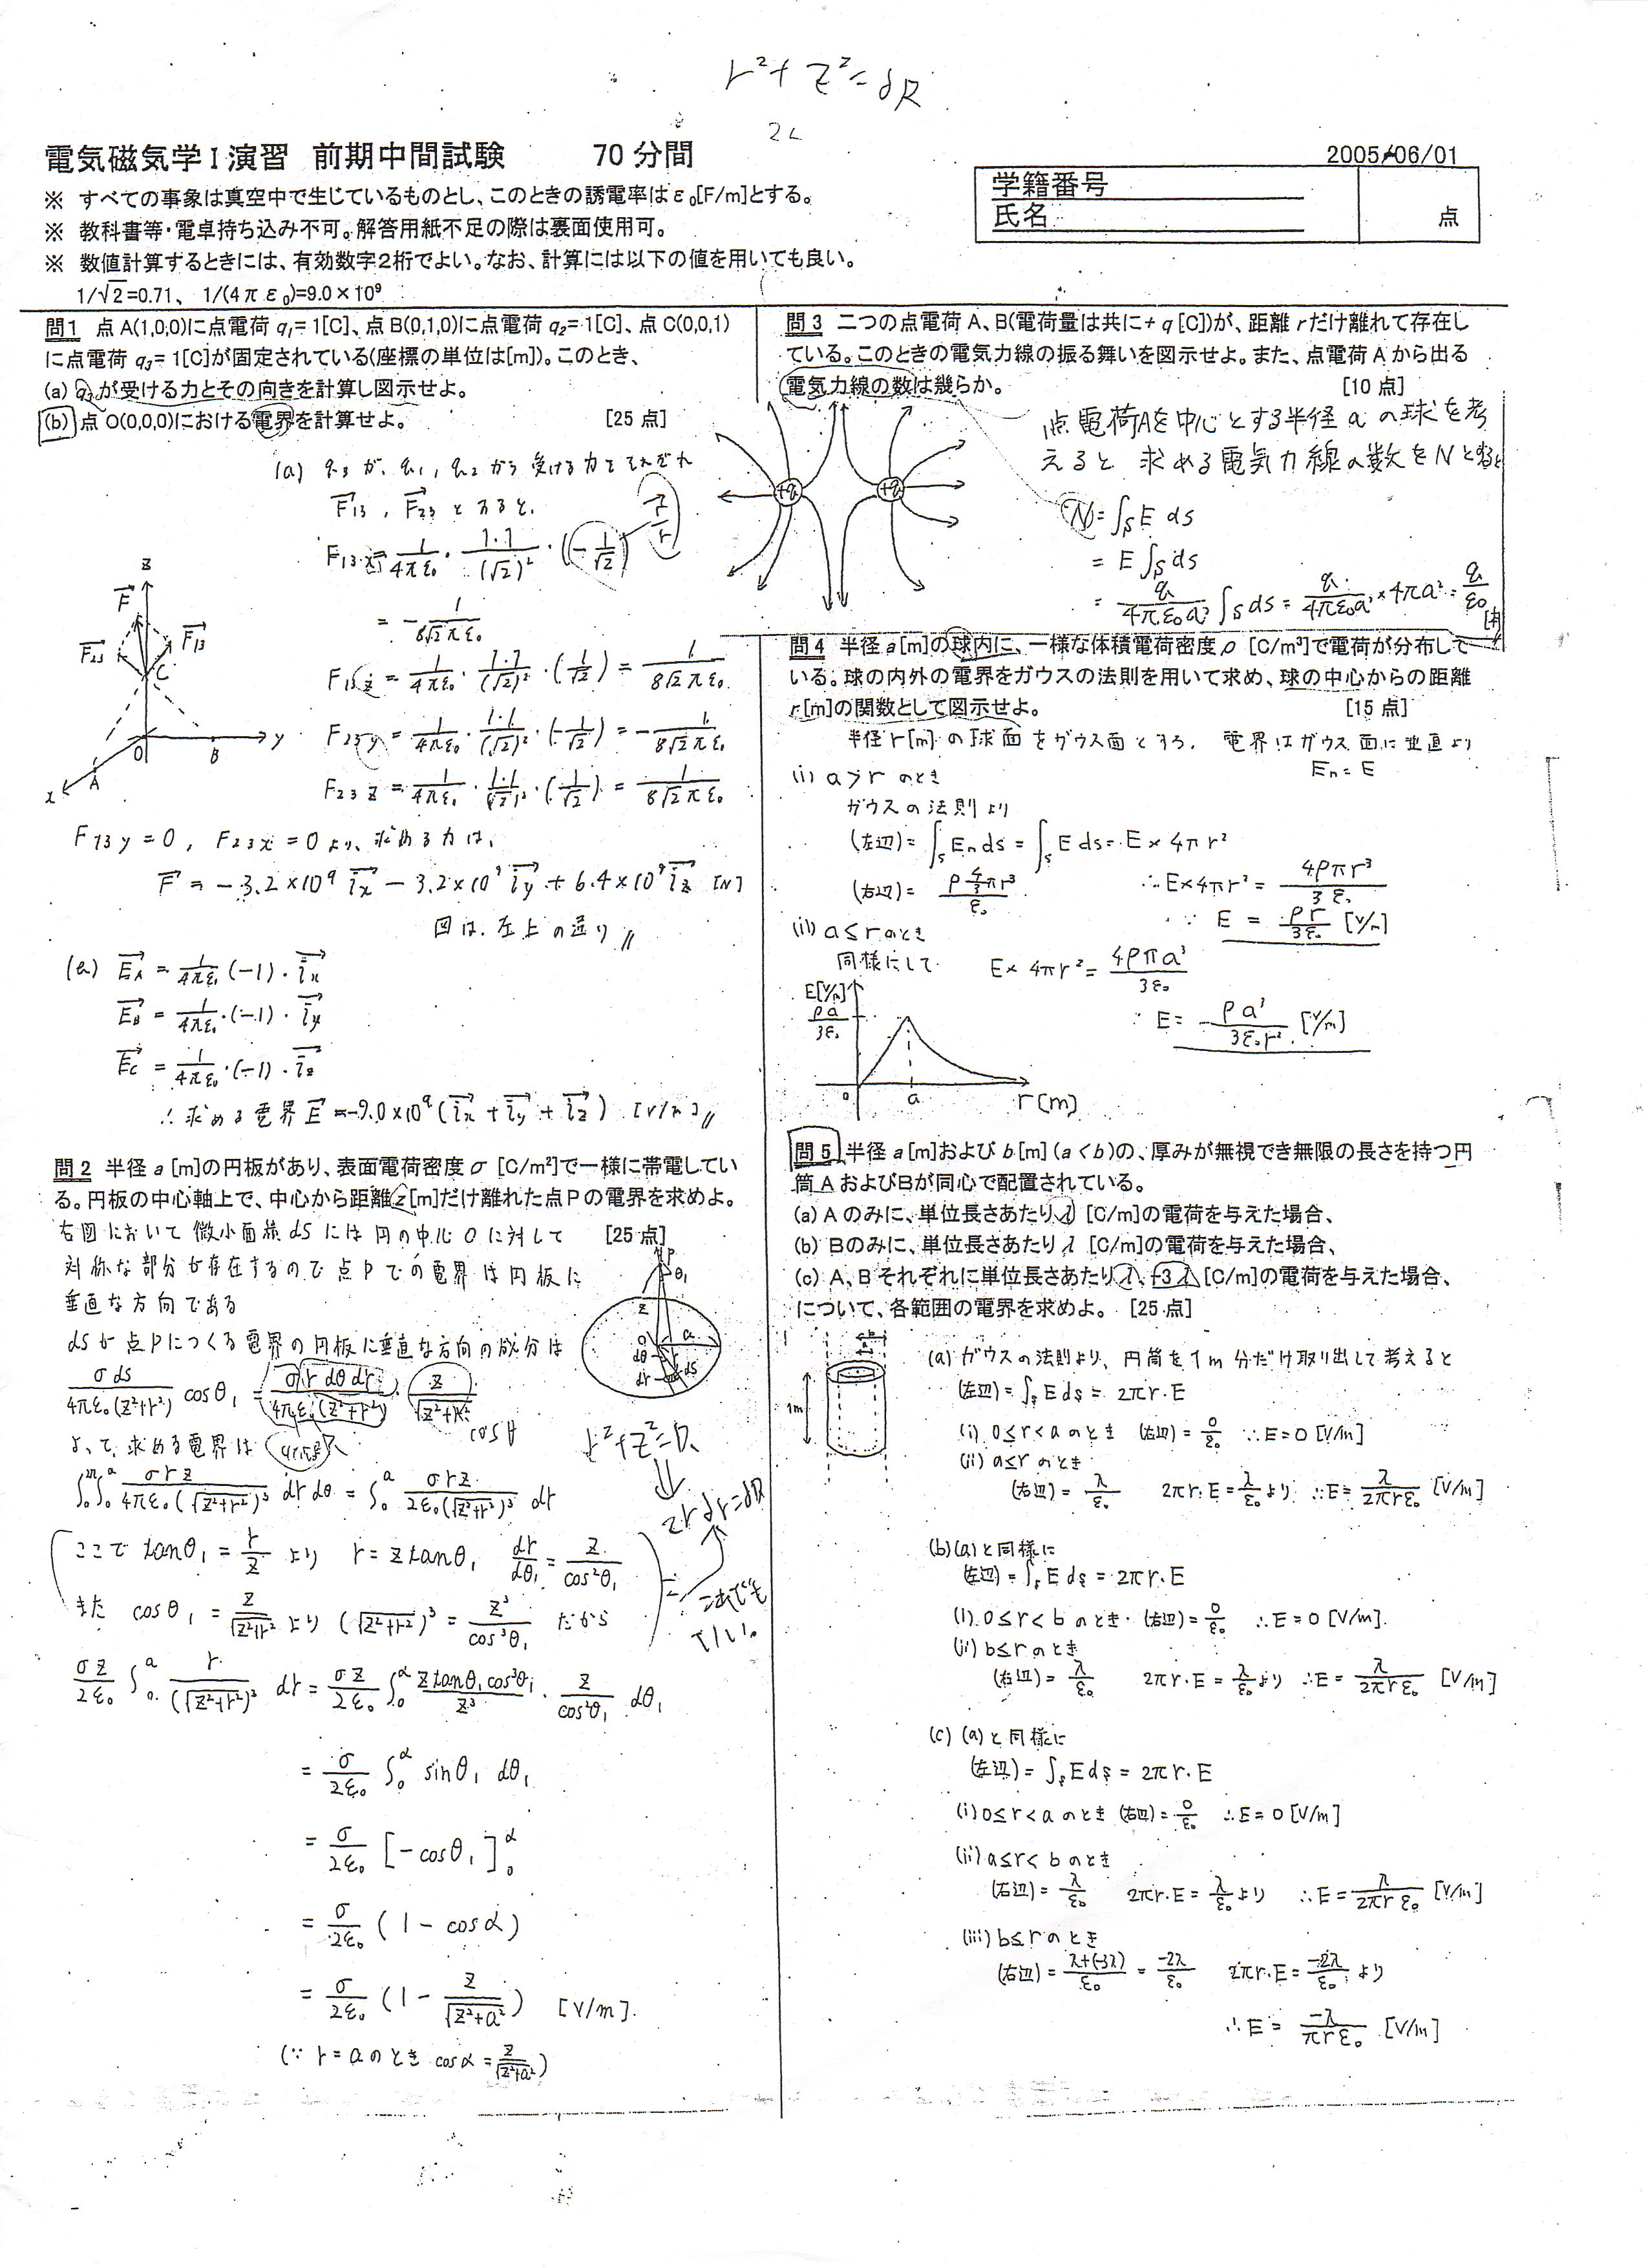 r²+z²=dR
電気磁気学Ⅰ演習 前期中間試験 70分間
2005/06/01
※ すべての事象は真空中で生じているものとし、このときの誘電率はε₀[F/m]とする。
※ 教科書等・電卓持ち込み不可。解答用紙不足の際は裏面使用可。
※ 数値計算するときには、有効数字2桁でよい。なお、計算には以下の値を用いても良い。
1/√2=0.71、 1/(4πε₀)=9.0×10⁹
学籍番号
氏名
点
問1 点A(1,0,0)に点電荷 q₁=1[C]、点B(0,1,0)に点電荷 q₂=1[C]、点C(0,0,1)
に点電荷 q₃=1[C]が固定されている(座標の単位は[m])。このとき、
(a) q₃が受ける力とその向きを計算し図示せよ。
(b) 点O(0,0,0)における電界を計算せよ。 [25点]
(a) q₃が、q₁, q₂から受ける力をそれぞれ
F₁₃, F₂₃とすると、
F₁₃x = 1/4πε₀ · 1·1/(√2)² · (-1/√2)
= -1/8√2πε₀
F₁₃z = 1/4πε₀ · 1·1/(√2)² · (1/√2) = 1/8√2πε₀
F₂₃y = 1/4πε₀ · 1·1/(√2)² · (-1/√2) = -1/8√2πε₀
F₂₃z = 1/4πε₀ · 1·1/(√2)² · (1/√2) = 1/8√2πε₀
z
F
F₂₃
F₁₃
C
O
B
y
A
x
F₁₃y=0, F₂₃x=0より、求める力は、
F = -3.2×10⁹ix - 3.2×10⁹iy + 6.4×10⁹iz [N]
図は、左上の通り〃
(b) EA = 1/4πε₀ (-1)·ix
EB = 1/4πε₀·(-1)·iy
EC = 1/4πε₀·(-1)·iz
∴求める電界E=-9.0×10⁹(ix+iy+iz) [V/m]〃
問2 半径a[m]の円板があり、表面電荷密度σ[C/m²]で一様に帯電してい
る。円板の中心軸上で、中心から距離z[m]だけ離れた点Pの電界を求めよ。
[25点]
右図において微小面積dsには円の中心Oに対して
対称な部分が存在するので点Pでの電界は円板に
垂直な方向である
dsが点Pにつくる電界の円板に垂直な方向の成分は
σds/4πε₀(z²+r²) cosθ₁ = σrdθdr/4πε₀(z²+r²) · z/√z²+r²
cosθ
よって求める電界は
∫₀∫₀ᵃ σrz/4πε₀(√z²+r²)³ drdθ = ∫₀ᵃ σrz/2ε₀(√z²+r²)³ dr
P
θ₁
z
O
a
dθ
r
dr
ds
2rdr=dR
ここで tanθ₁=r/z より r=ztanθ₁ dr/dθ₁=z/cos²θ₁
また cosθ₁=z/√z²+r² より (√z²+r²)³=z³/cos³θ₁ だから
これでも
いい。
σz/2ε₀ ∫₀ᵃ r/(√z²+r²)³ dr = σz/2ε₀ ∫₀^α ztanθ₁cos³θ₁/z³ · z/cos²θ₁ dθ₁
= σ/2ε₀ ∫₀^α sinθ₁ dθ₁
= σ/2ε₀ [-cosθ₁]₀^α
= σ/2ε₀ (1-cosα)
= σ/2ε₀ (1 - z/√z²+a²) [V/m].
(∵ r=aのとき cosα=z/√z²+a²)
問3 二つの点電荷A、B(電荷量は共に+q[C])が、距離rだけ離れて存在し
ている。このときの電気力線の振る舞いを図示せよ。また、点電荷Aから出る
電気力線の数は幾らか。 [10点]
+q
+q
点電荷Aを中心とする半径aの球を考
えると 求める電気力線の数をNとすると
N=∫s E ds
= E∫s ds
= q/4πε₀a² ∫s ds = q/4πε₀a² ×4πa² = q/ε₀ [本]
問4 半径a[m]の球内に、一様な体積電荷密度ρ[C/m³]で電荷が分布して
いる。球の内外の電界をガウスの法則を用いて求め、球の中心からの距離
r[m]の関数として図示せよ。 [15点]
半径r[m]の球面をガウス面とする。電界はガウス面に垂直より
En=E
(i) a>rのとき
ガウスの法則より
(左辺)=∫s En ds=∫s E ds=E×4πr²
(右辺)= ρ4/3πr³/ε₀ ∴E×4πr²=4ρπr³/3ε₀
∵ E = ρr/3ε₀ [V/m]
(ii) a≤rのとき
同様にして E×4πr²=4ρπa³/3ε₀
∵ E= ρa³/3ε₀r² [V/m]
E[V/m]
ρa/3ε₀
0
a
r[m]
問5 半径a[m]およびb[m](a<b)の、厚みが無視でき無限の長さを持つ円
筒AおよびBが同心で配置されている。
(a) Aのみに、単位長さあたりλ[C/m]の電荷を与えた場合、
(b) Bのみに、単位長さあたりλ[C/m]の電荷を与えた場合、
(c) A、Bそれぞれに単位長さあたりλ、-3λ[C/m]の電荷を与えた場合、
について、各範囲の電界を求めよ。[25点]
1m
(a) ガウスの法則より、円筒を1m分だけ取り出して考えると
(左辺)=∫s E ds = 2πr·E
(i) 0≤r<aのとき (右辺)=0/ε₀ ∵E=0[V/m]
(ii) a≤rのとき
(右辺)=λ/ε₀ 2πr·E=λ/ε₀より ∴E=λ/2πrε₀ [V/m]
(b) (a)と同様に
(左辺)=∫s E ds = 2πr·E
(i) 0≤r<bのとき·(右辺)=0/ε₀ ∴E=0[V/m].
(ii) b≤rのとき
(右辺)=λ/ε₀ 2πr·E=λ/ε₀より ∴E=λ/2πrε₀ [V/m]
(c) (a)と同様に
(左辺)=∫s E ds = 2πr·E
(i) 0≤r<aのとき (右辺)=0/ε₀ ∴E=0[V/m]
(ii) a≤r<bのとき
(右辺)=λ/ε₀ 2πr·E=λ/ε₀より ∴E=λ/2πrε₀ [V/m]
(iii) b≤rのとき
(右辺)=λ+(-3λ)/ε₀ = -2λ/ε₀ 2πr·E=-2λ/ε₀より
∴E= -λ/πrε₀ [V/m]